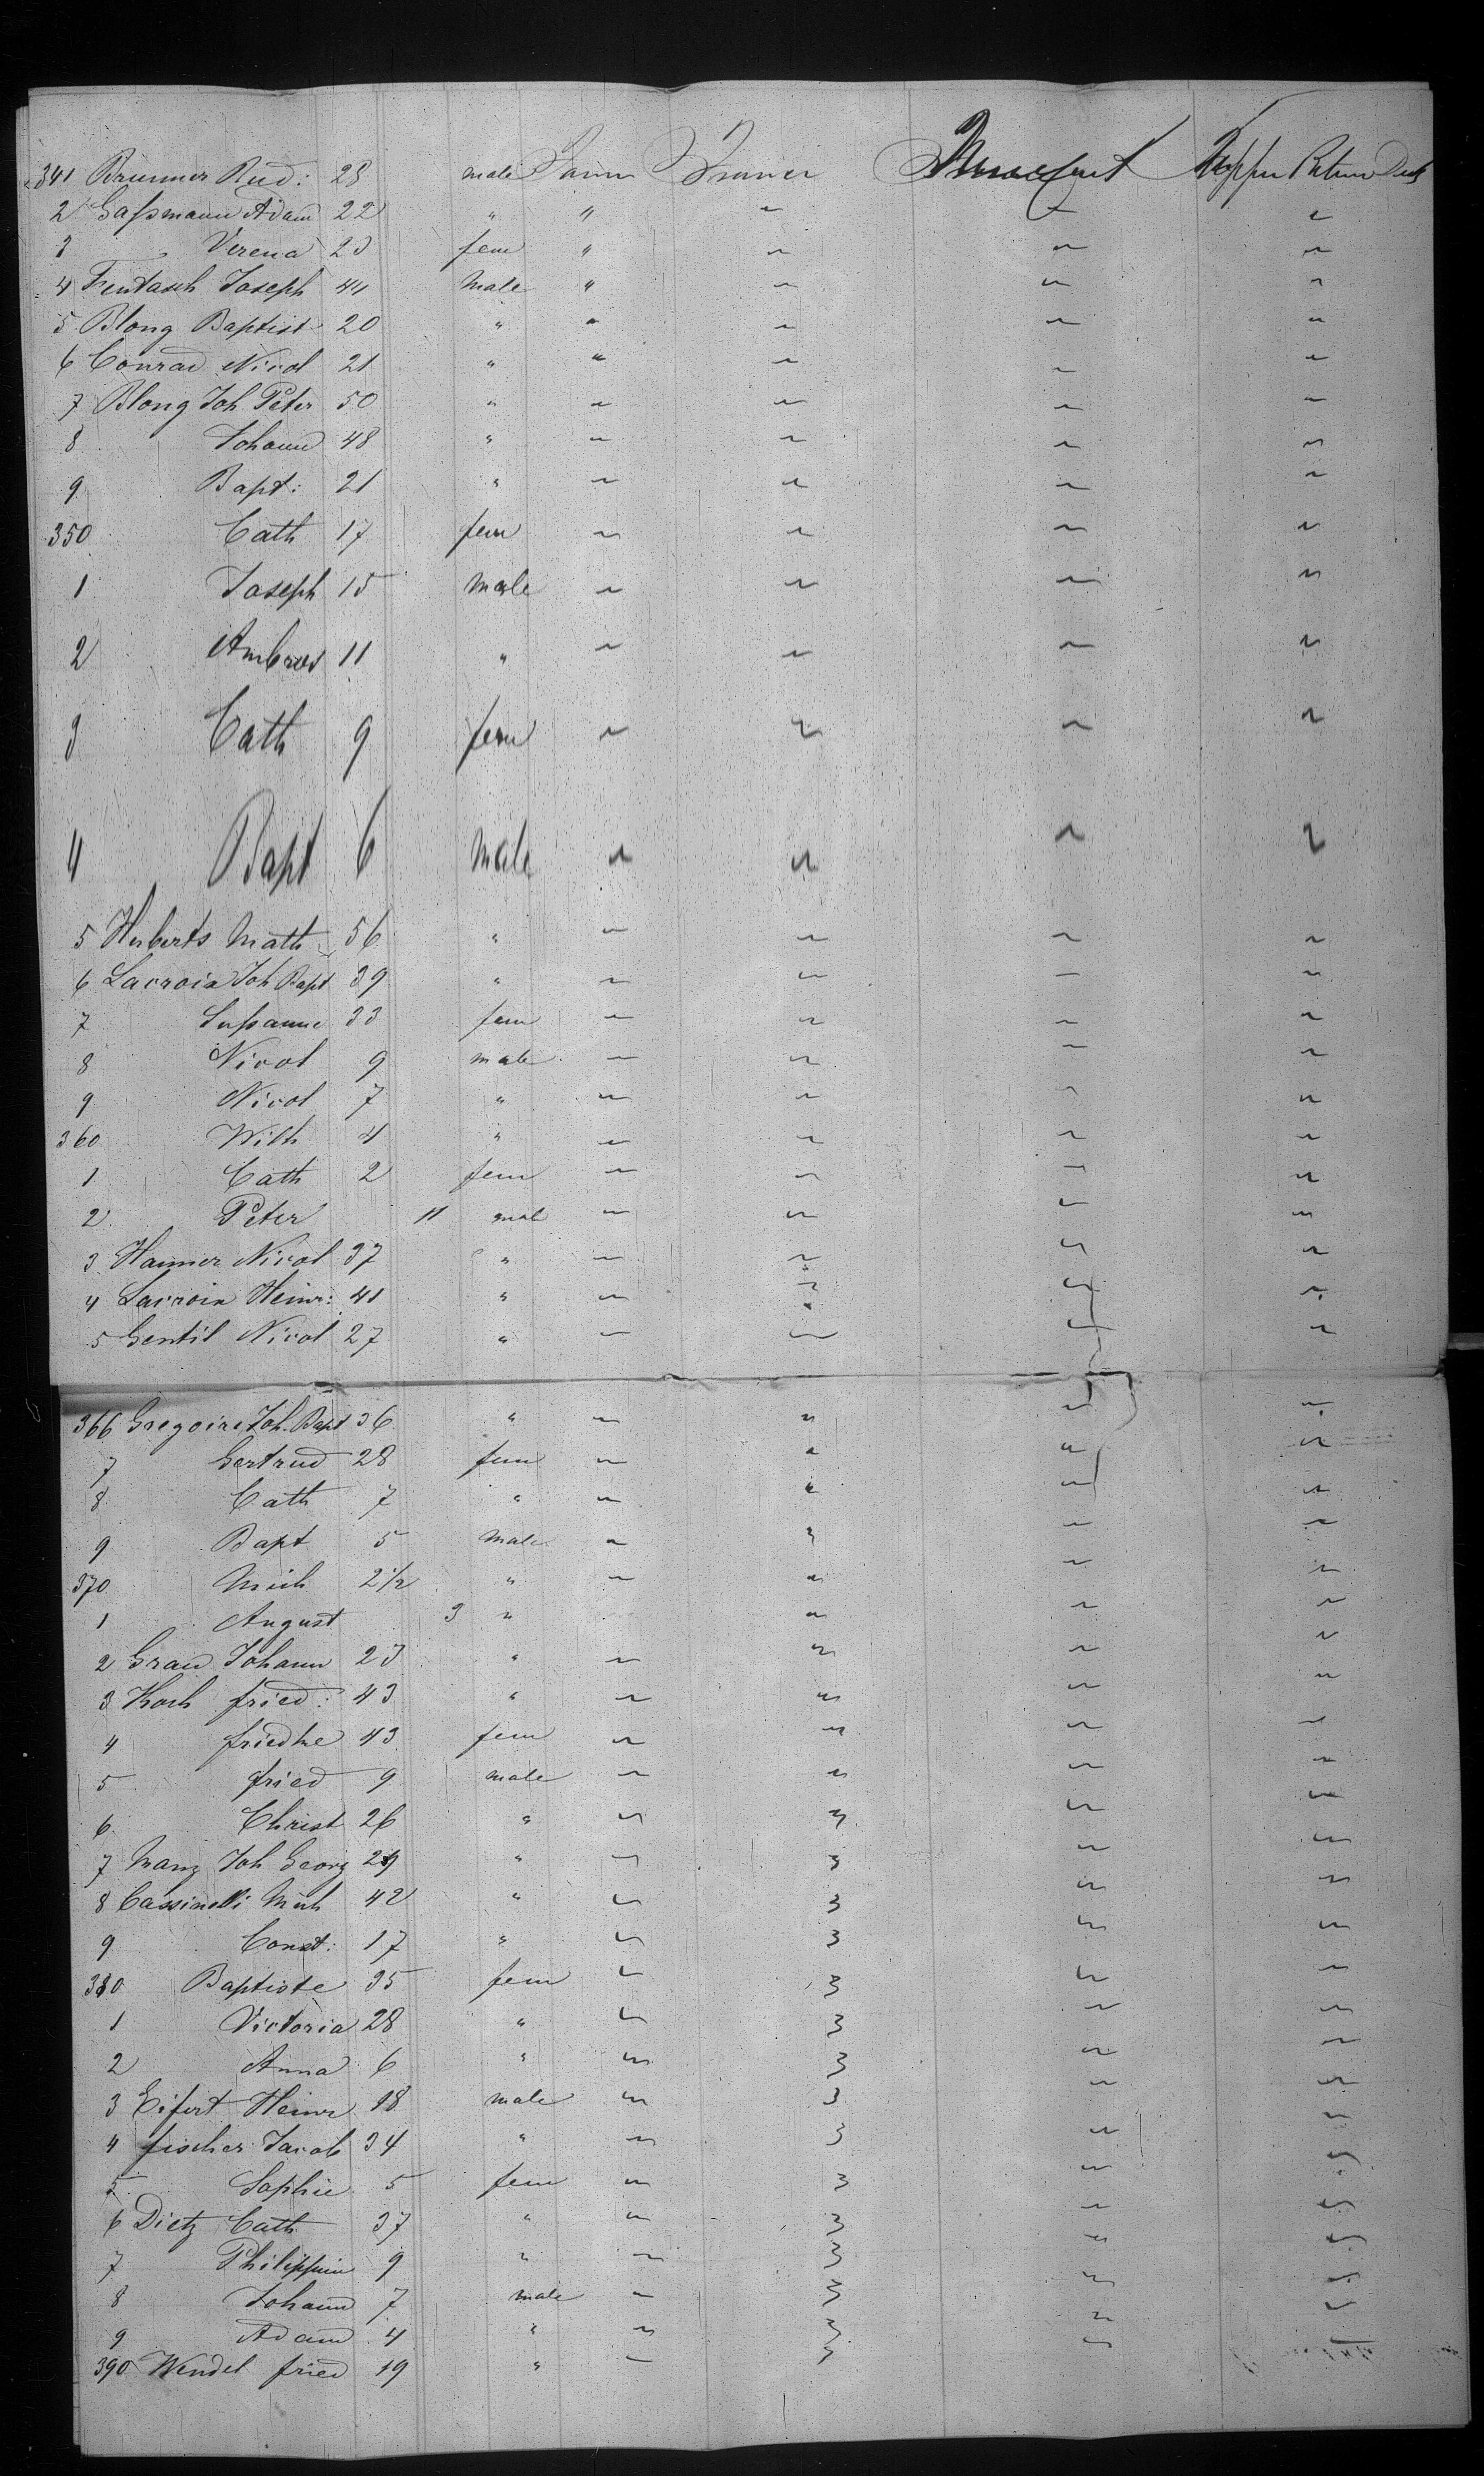 341 Brunner Rud: 28 male Farmer France Upper Between Deck
2 Gaßmann Adam 22 " " " " "
3 Verena 23 fem " " " "
4 Joseph 44 Male " " " "
5 Blong Baptist 20 " " " " "
6 Conrad Nicol 21 " " " " "
7 Blong Joh Peter 50 " " " " "
8 Johann 48 " " " " "
9 Bapt: 21 " " " " "
350 Cath 17 fem " " " "
1 Joseph 15 male " " " "
2 Ambros 11 " " " " "
3 Cath 9 fem " " " "
4 Bapt 6 male " " " "
5 Herberts Math 56 " " " " "
6 Lacroix Joh Bapt 39 " " " " "
7 Sußanne 33 fem " " " "
8 Nicol 9 male " " " "
9 Nicol 7 " " " " "
360 Wilh 4 " " " " "
1 Cath 2 fem " " " "
2 Peter 11 male " " " "
3 Hanner Nicol 37 " " " " "
4 Lacroix Heinr: 41 " " " " "
5 Gentil Nicol 27 " " " " "
366 Gregoire Joh. Bapt 36 " " " " "
7 Gertrud 28 fem " " " "
8 Cath 7 " " " " "
9 Bapt 5 male " " " "
370 Mich 2½ " " " " "
1 August 3 " " " "
2 Grau Johann 23 " " " " "
3 Koch fried: 43 " " " " "
4 friedke 43 fem " " " "
5 fried 9 male " " " "
6 Christ 26 " " " " "
7 Manz Joh Georg 29 " " " " "
8 Cassinelli Mich 42 " " " " "
9 Const: 17 " " " " "
380 Baptiste 35 fem " " " "
1 Victoria 28 " " " " "
2 Anna 6 " " " " "
3 Eifert Heinr 18 male " " " "
4 fischer Jacob 34 " " " " "
5 Sophie 5 fem " " " "
6 Dietz Cath 37 " " " " "
7 Philippine 9 " " " " "
8 Johann 7 male " " " "
9 Adam 4 " " " " "
390 Wendel fried 19 " " " "